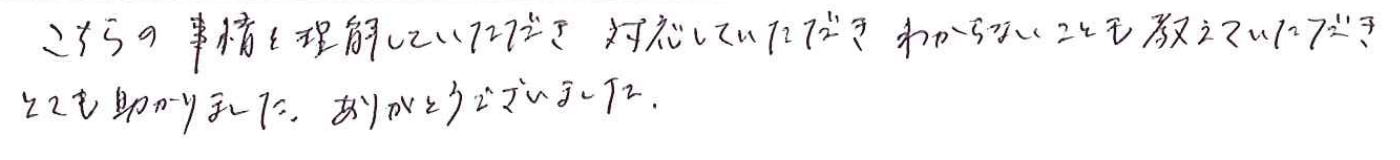 こちらの事情を理解していただき 対応していただき わからないことも教えていただき
とても助かりました。ありがとうございました。